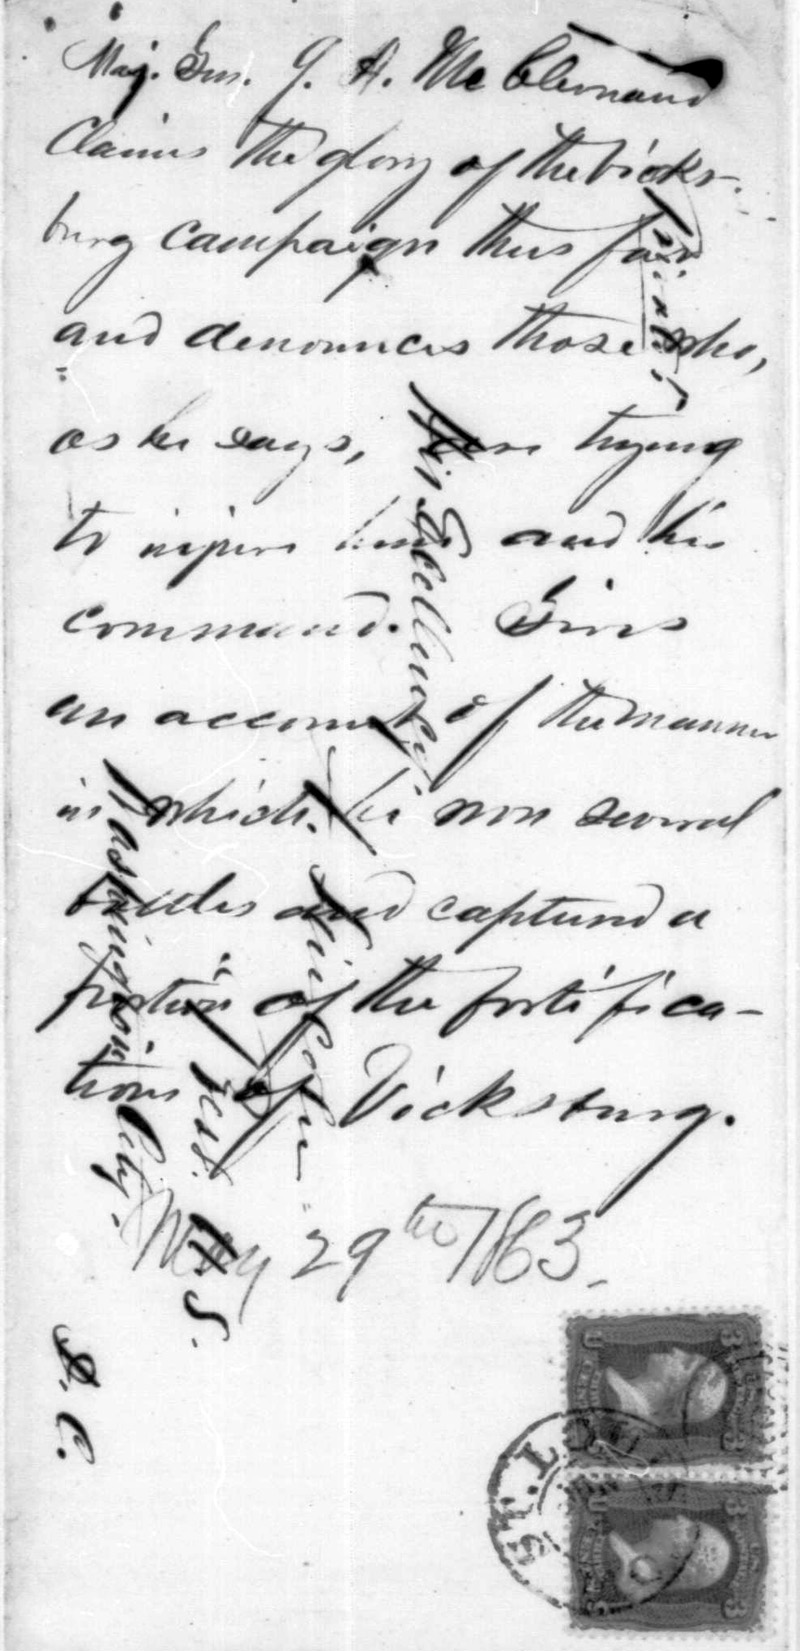 Maj. Gen. J. A. McClernand
Claims the glory of the Vicks-
burg campaign thus far
and denounces those who,
as he says, are trying
to injure him and his
command. Gives
an account of the manner
in which he won several
battles and captured a
portion of the fortifica-
tions of Vicksburg.
May 29th 1863.
Private
His Excellency
A. Lincoln
Pres. U. S.
Washington City,
D. C.
ST. L
U 3
U 3